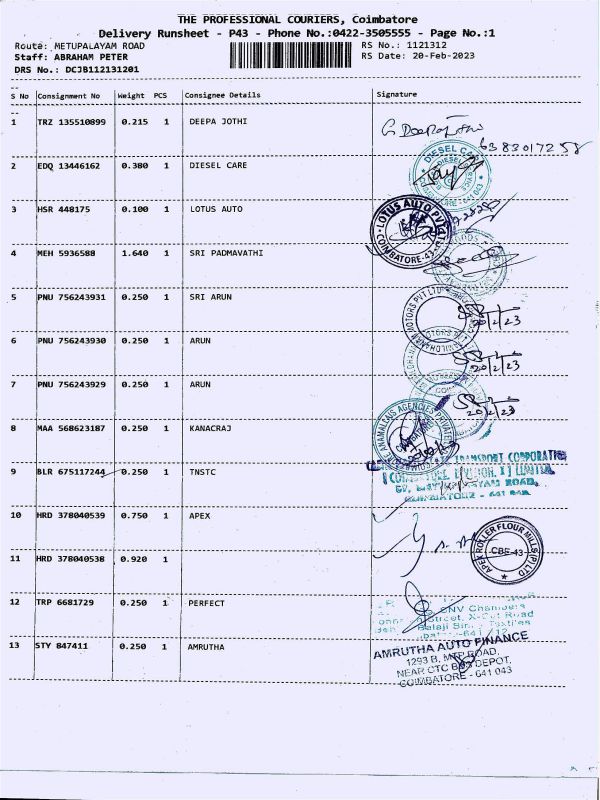 THE PROFESSIONAL COURIERS, Coimbatore
Delivery Runsheet - P43 - Phone No.:0422-3505555 - Page No.:1
Route: METUPALAYAM ROAD RS No.: 1121312
Staff: ABRAHAM PETER RS Date: 20-Feb-2023
DRS No.: DCJB112131201
S No Consignment No Weight PCS Consignee Details Signature
1 TRZ 135510899 0.215 1 DEEPA JOTHI
6383017258
2 EDQ 13446162 0.380 1 DIESEL CARE DIESEL CARE
3 HSR 448175 0.100 1 LOTUS AUTO LOTUS AUTO PVT LTD COIMBATORE-43
4 MEH 5936588 1.640 1 SRI PADMAVATHI
5 PNU 756243931 0.250 1 SRI ARUN MOTORS PVT LTD 20/2/23
6 PNU 756243930 0.250 1 ARUN 20/2/23
7 PNU 756243929 0.250 1 ARUN 20/2/23
8 MAA 568623187 0.250 1 KANACRAJ ANAMALAIS AGENCIES PRIVATE
9 BLR 675117244 0.250 1 TNSTC TRANSPORT CORPORATION
ROAD,
10 HRD 378040539 0.750 1 APEX APEX ROLLER FLOUR MILLS (P) LTD CBE-43
11 HRD 378040538 0.920 1
12 TRP 6681729 0.250 1 PERFECT
GNV Chambers
Road
Balaji
13 STY 847411 0.250 1 AMRUTHA AMRUTHA AUTO FINANCE
1293 B, MTP ROAD,
NEAR CTC BUS DEPOT,
COIMBATORE - 641 043